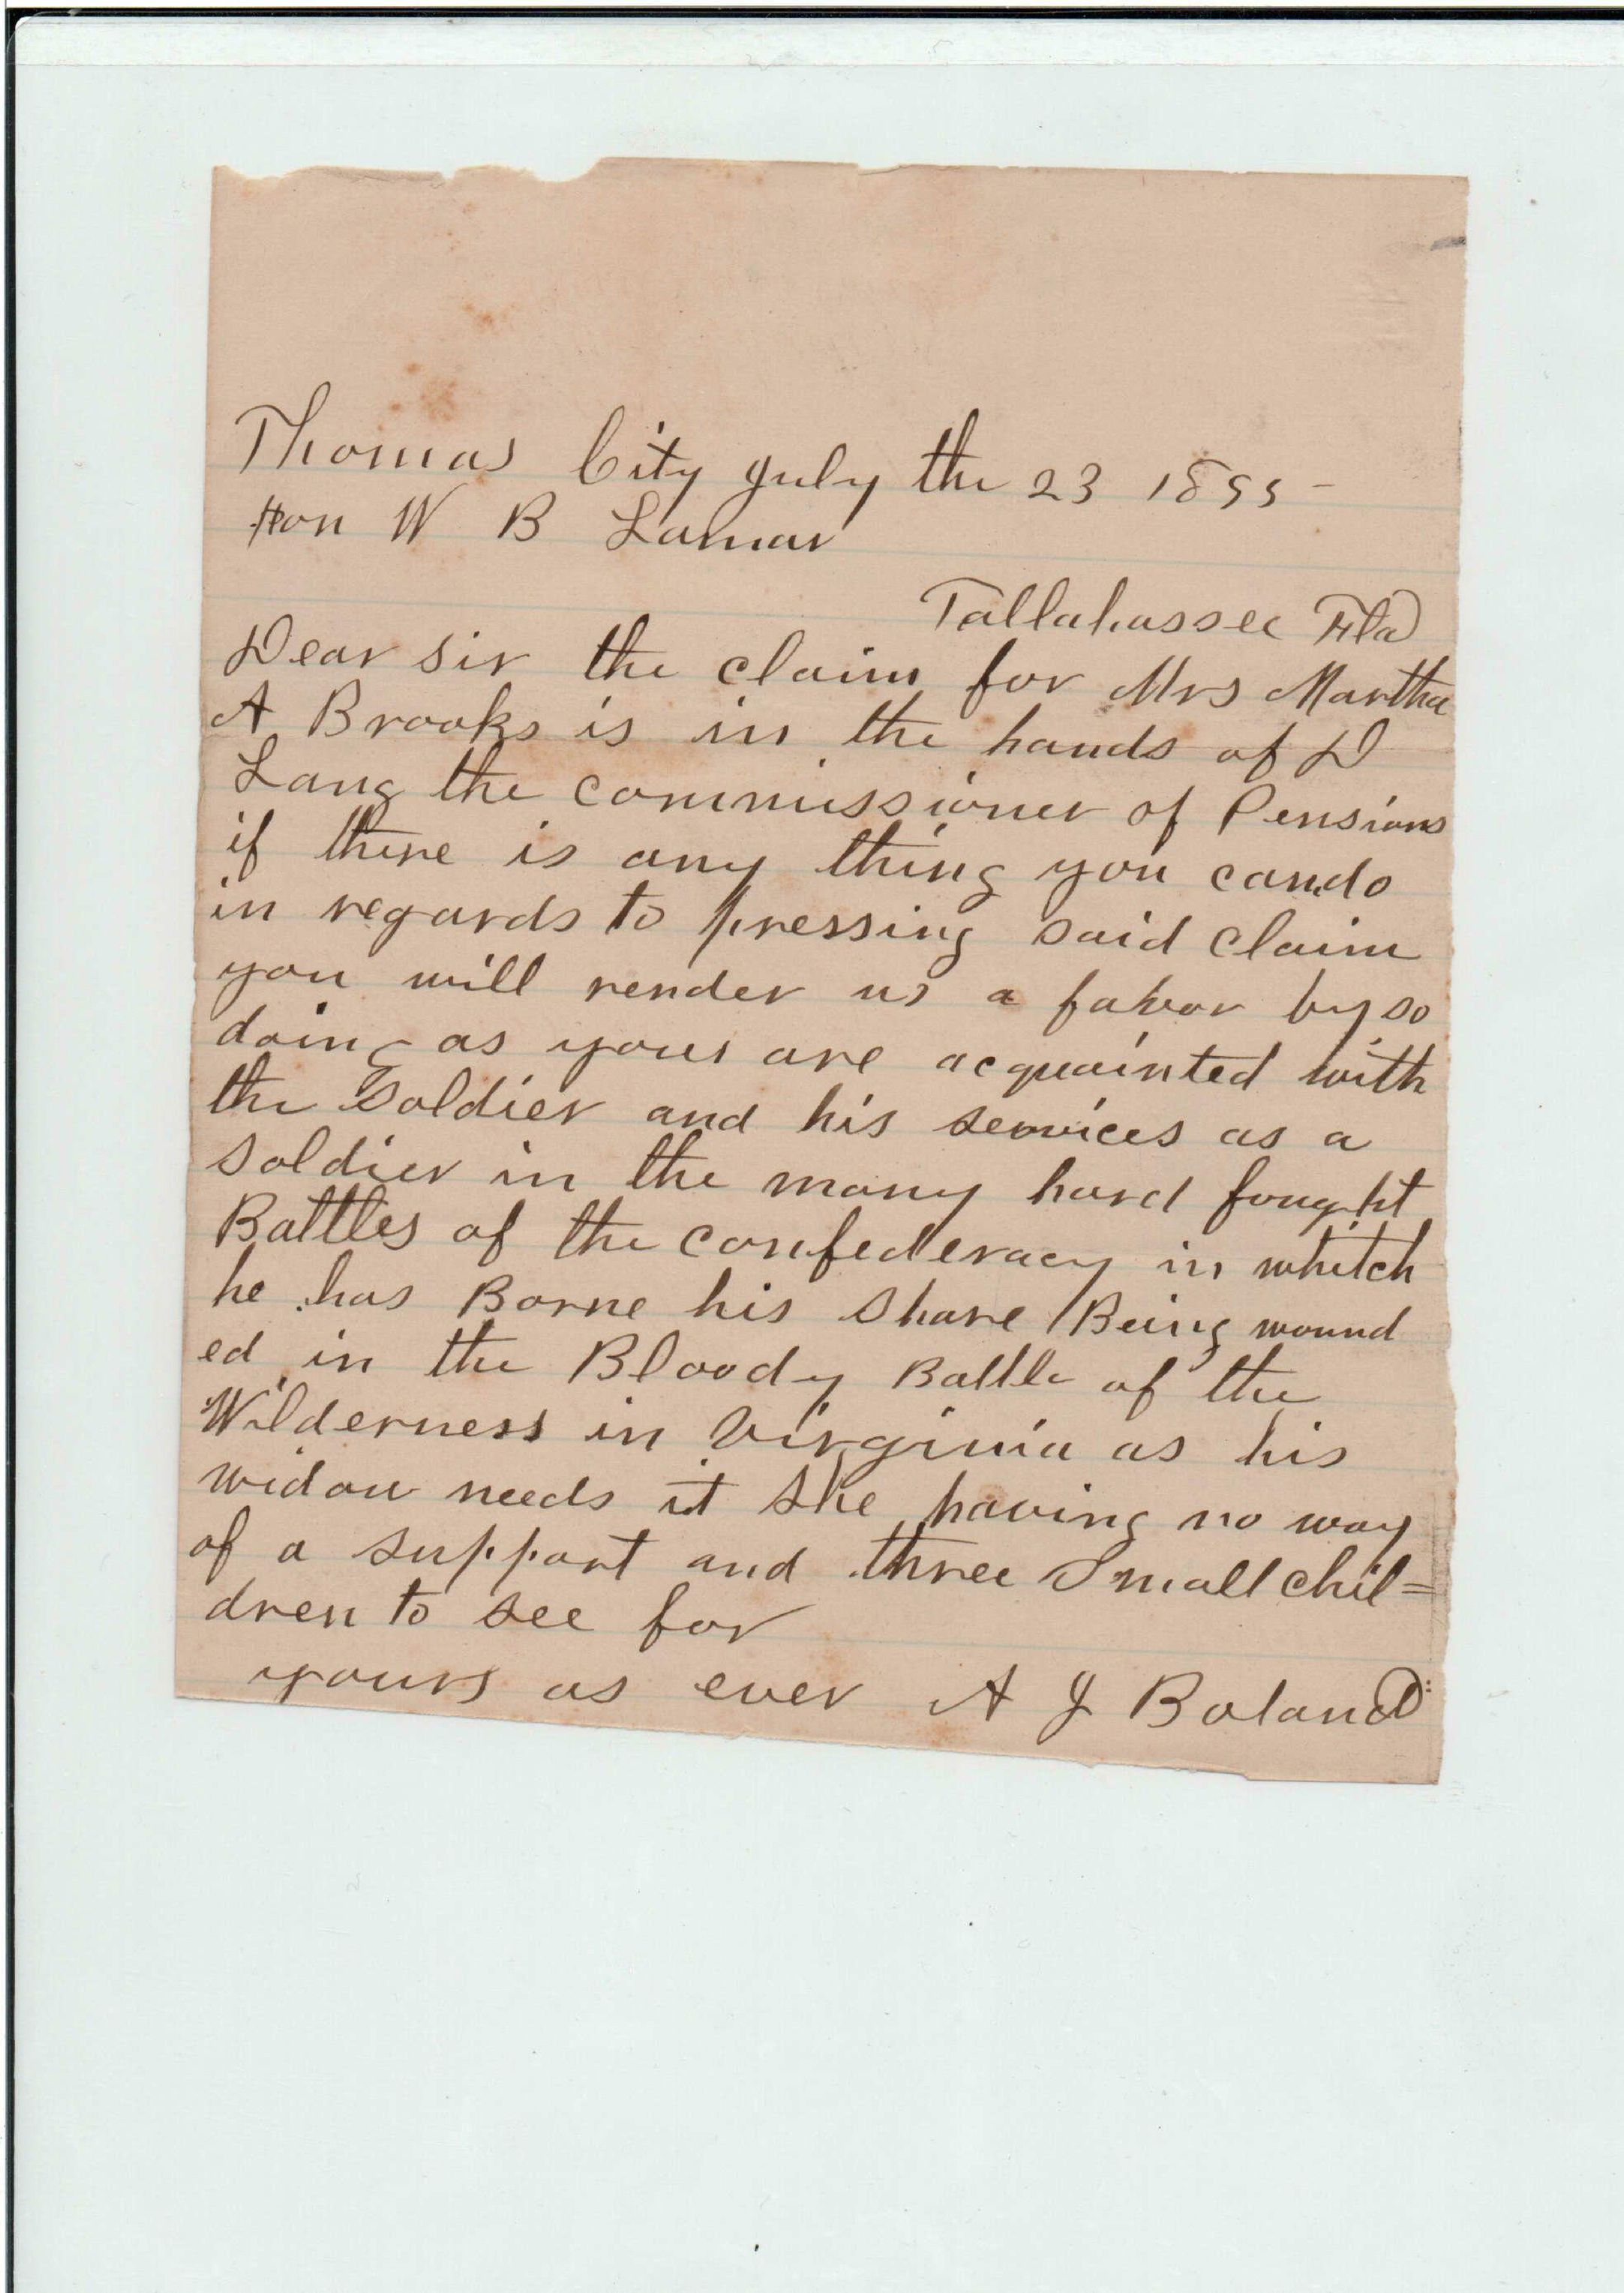 Thomas City July the 23 1895 -
Hon W B Lamar
Tallahassee Fla
Dear sir the claim for Mrs Martha
A Brooks is in the hands of D
Lang the commissioner of Pensions
if there is any thing you can do
in regards to pressing said claim
you will render us a favor by so
doing as your are acquainted with
the soldier and his services as a
soldier in the many hard fought
Battles of the confederacy in whitch
he has Borne his share Being wound
ed in the Bloody Battle of the
Wilderness in Virginia as his
widow needs it she having no way
of a support and three Small chil=
dren to see for
yours as ever A J Boland